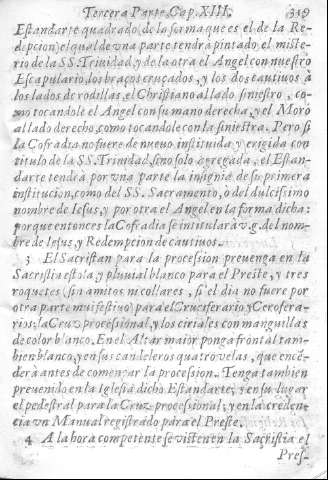 Tercera Parte, Cap. XIII. 319
Estandarte quadrado, de la forma que es el de la Re-
depcion, el qual de vna parte tendrà pintado el miste-
rio de la SS. Trinidad, y de la otra el Angel con nuestro
Escapulario, los braços cruçados, y los dos cautivos à
los lados de rodillas, el Christiano al lado siniestro, co-
mo tocandole el Angel con su mano derecha, y el Moro
al lado derecho, como tocandole con la siniestra. Pero si
la Cofradia no fuere de nuevo instituida, y erigida con
titulo de la SS. Trinidad, sino solo agregada, el Estan-
darte tendrà por vna parte la insignia de su primera
institucion, como del SS. Sacramento, ò del dulcissimo
nombre de Iesus, y por otra el Angel en la forma dicha:
porque entonces la Cofradia se intitularà v.g. del nom-
bre de Iesus, y Redempcion de cautivos.
3 El Sacristan para la procession prevenga en la
Sacristia estola, y pluvial blanco para el Preste, y tres
roquetes (sin amitos ni collares, si el dia no fuere por
otra parte muy festivo) para el Cruciferario, y Cerofera-
rios; la Cruz processional, y los ciriales con manguillas
de color blanco. En el Altar maior ponga frontal tam-
bien blanco, y en sus candeleros quatro velas, que encē-
derà antes de començar la procession. Tenga tambien
prevenido en la Iglesia dicho Estandarte; y en su lugar
el pedestral para la Cruz processional; y en la creden-
cia vn Manual registrado para el Preste.
4 A la hora competente se visten en la Sacristia el
Pres-